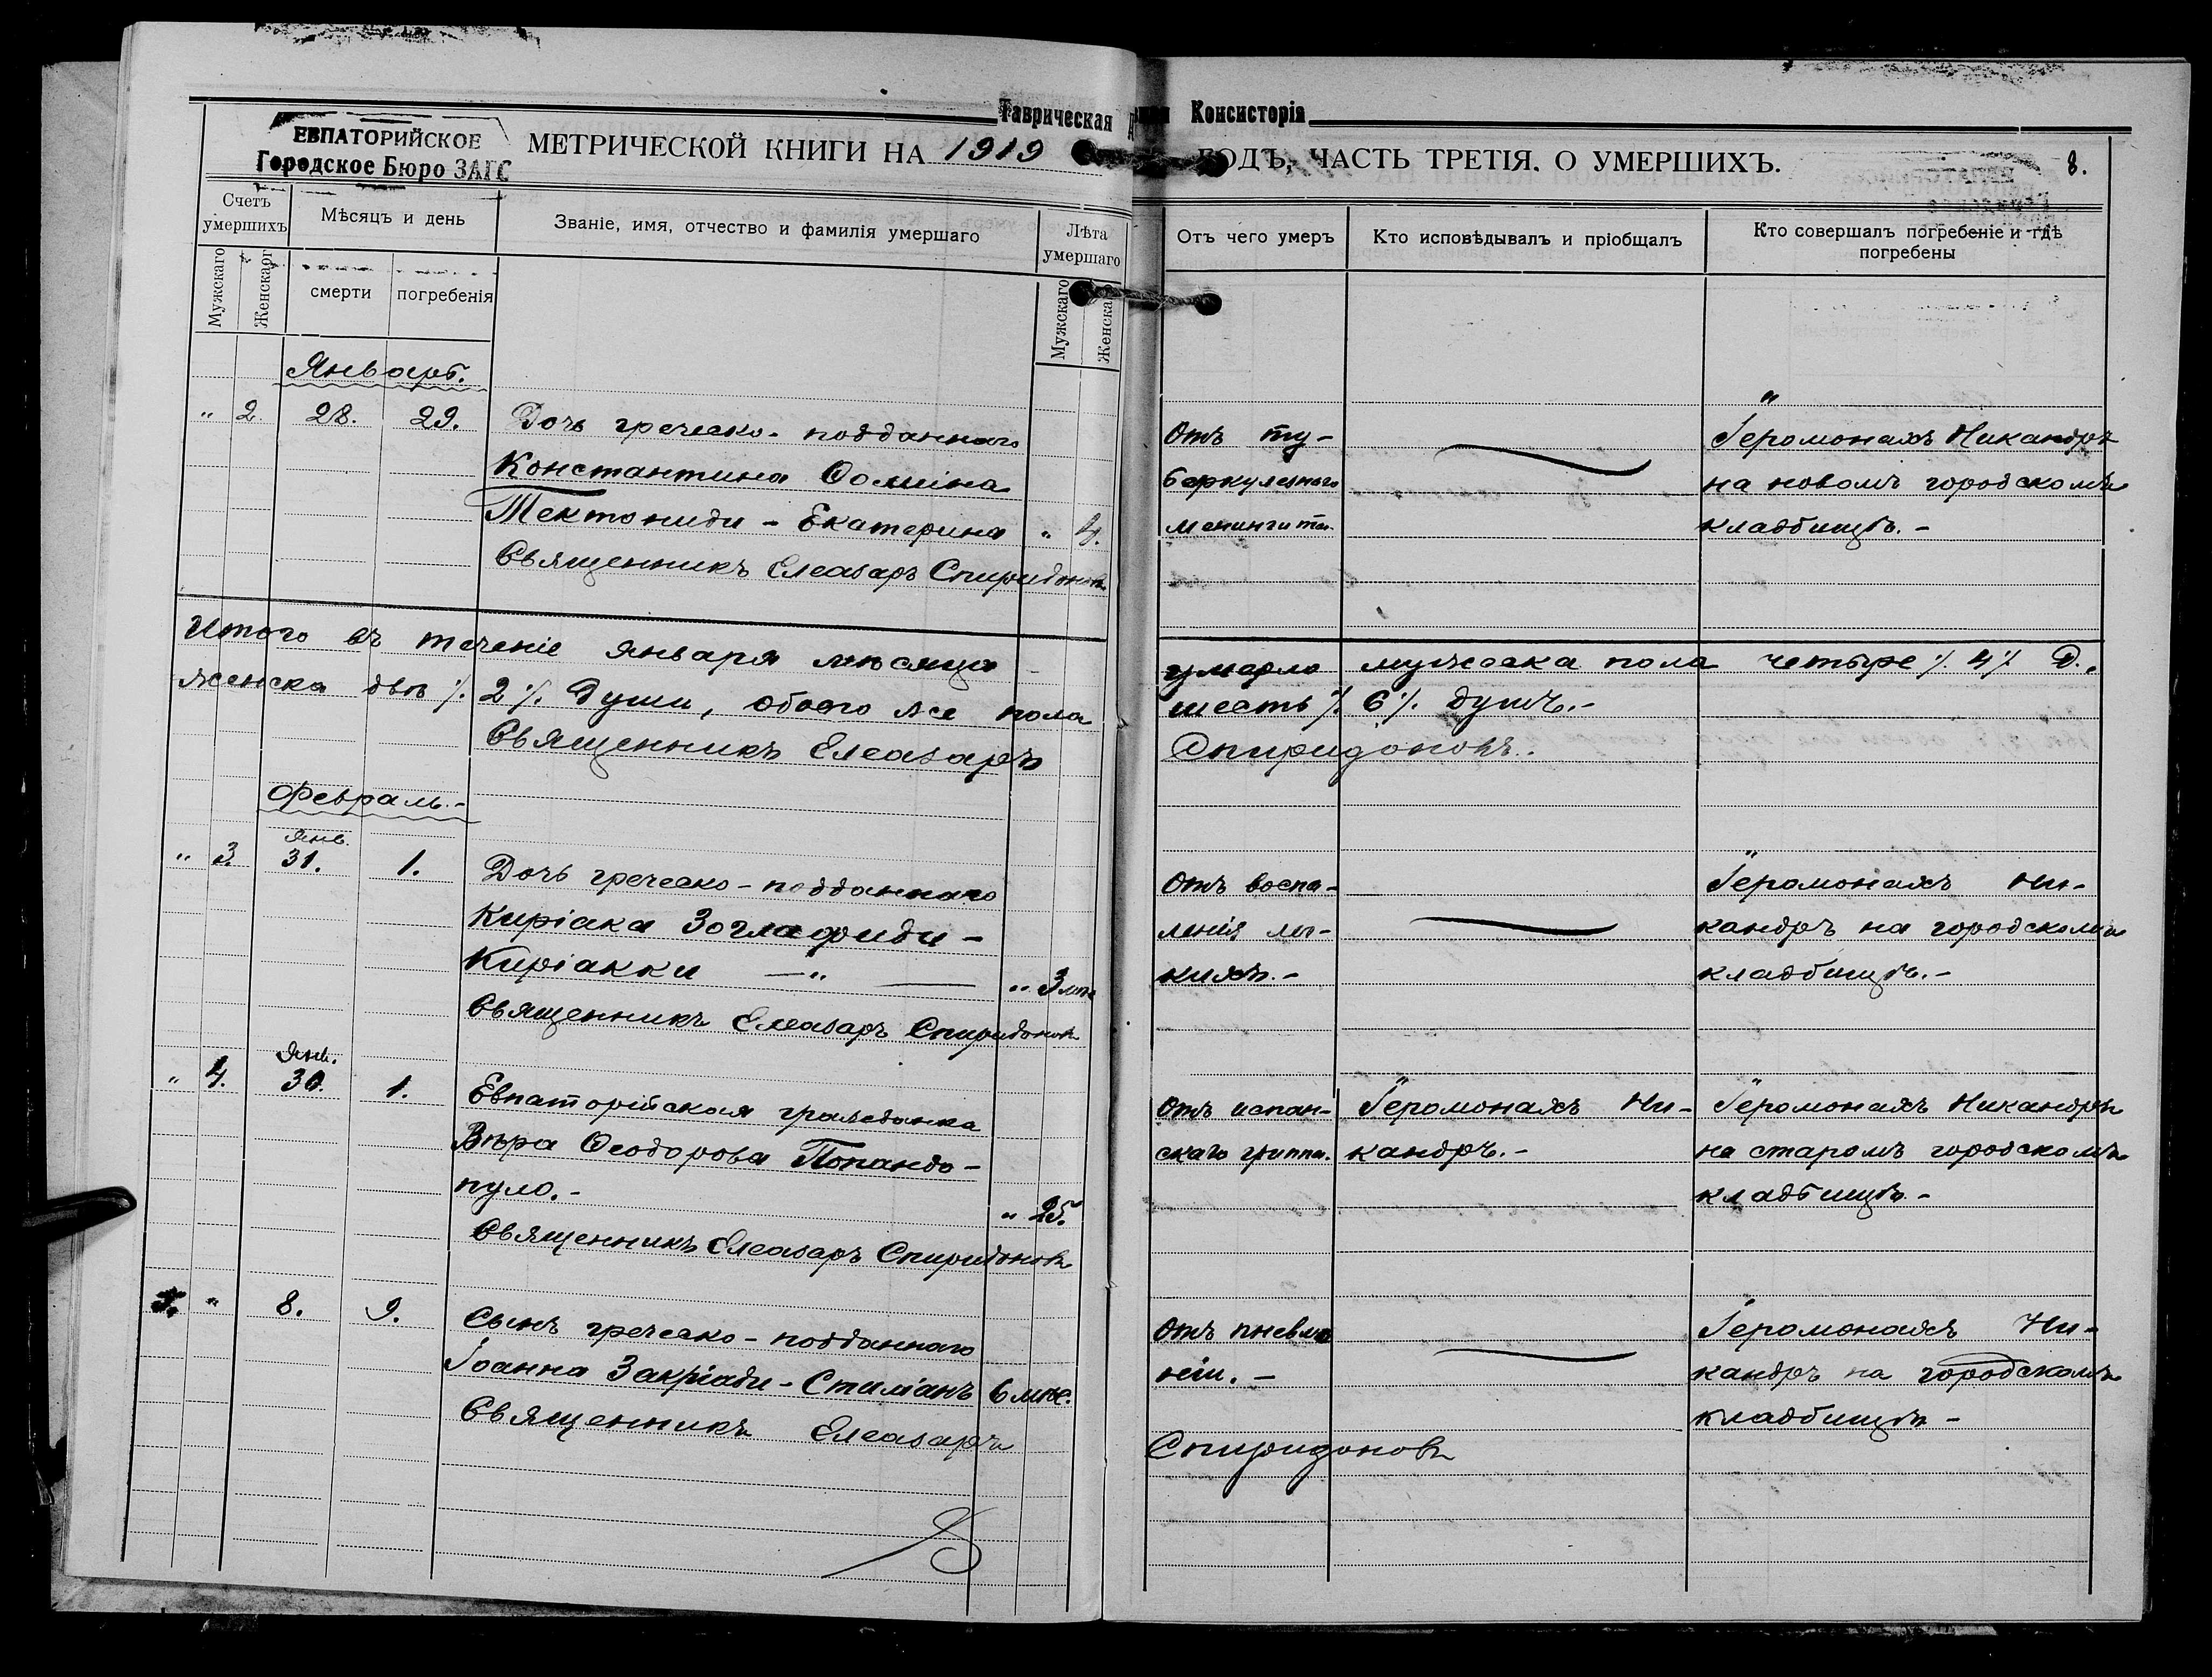 Таврическая Консисторія
ЕВПАТОРИЙСКОЕ
Городское Бюро ЗАГС
МЕТРИЧЕСКОЙ КНИГИ НА 1919 ГОДЪ, ЧАСТЬ ТРЕТІЯ. О УМЕРШИХЪ.
8.
Счетъ умершихъ
Мужскаго
Женскаго
Мѣсяцъ и день
смерти
погребенія
Званіе, имя, отчество и фамилія умершаго
Лѣта умершаго
Мужскаго
Женска
Отъ чего умеръ
Кто исповѣдывалъ и пріобщалъ
Кто совершалъ погребеніе и гдѣ
погребены
Январь.
" 2. 28. 29. Дочь греческо-подданнаго
Константина
Тектониди - Екатерина " 4.
Священникъ Елеазаръ Спиридоновъ
Отъ ту-
беркулезнаго
менингита.
Іеромонахъ Никандръ
на новомъ городскомъ
кладбищѣ. -
Итого въ теченіе января мѣсяца умерло мужеска пола четыре %. 4 %. д.,
женска двѣ %. 2 %. души, обоего же пола шесть %. 6 %. душъ. -
Священникъ Елеазаръ Спиридоновъ.
Февраль. -
Янв.
" 3. 31. 1. Дочь греческо-подданнаго
Киріака Зоглафиди -
Киріакки — " —— " 3 мѣ
Священникъ Елеазаръ Спиридоновъ
Отъ воспа-
ленія лег-
кихъ. -
Іеромонахъ Ни-
кандръ на городскомъ
кладбищѣ. -
Янв.
" 4. 30. 1. Евпаторійская гражданка
Вѣра Ѳеодорова Попандо-
пуло. - " 25.
Священникъ Елеазаръ Спиридоновъ
Отъ испан-
скаго гриппа.
Іеромонахъ Ни-
кандръ. -
Іеромонахъ Никандръ
на старомъ городскомъ
кладбищѣ. -
5. " 8. 9. Сынъ греческо-подданнаго
Іоанна Закріади - Стиліанъ 6 мѣс.
Священникъ Елеазаръ Спиридоновъ
Отъ пневмо
ніи. -
Іеромонахъ Ни-
кандръ на городскомъ
кладбищѣ -